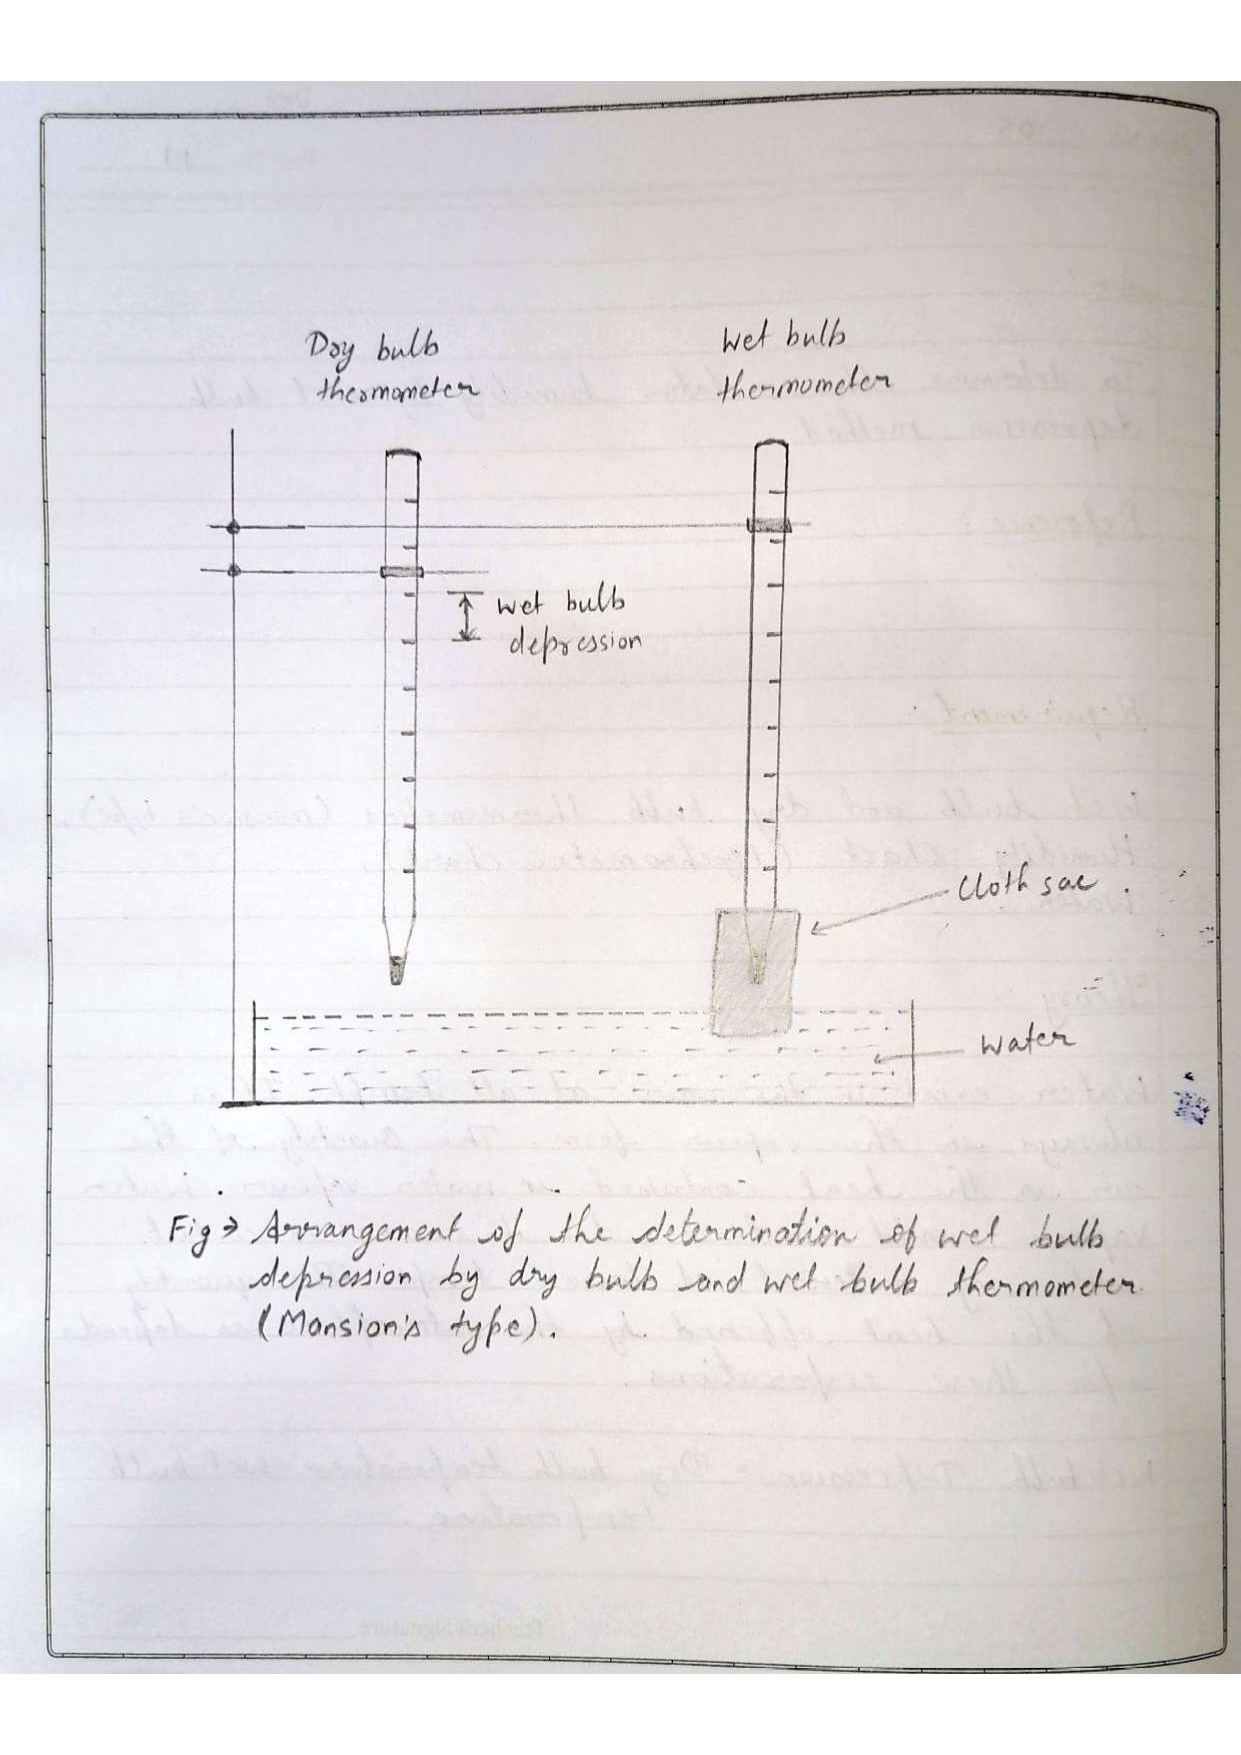 Dry bulb
thermometer
Wet bulb
thermometer
Wet bulb
depression
Cloth sac
Water
Fig → Arrangement of the determination of wet bulb
depression by dry bulb and wet bulb thermometer
(Mansion's type).